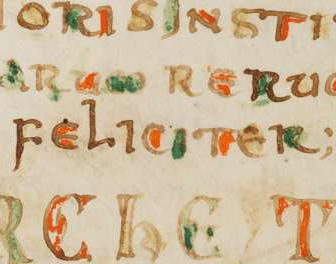 ORIS INSTI
ARUM RERU
FELICITER;
RCHET